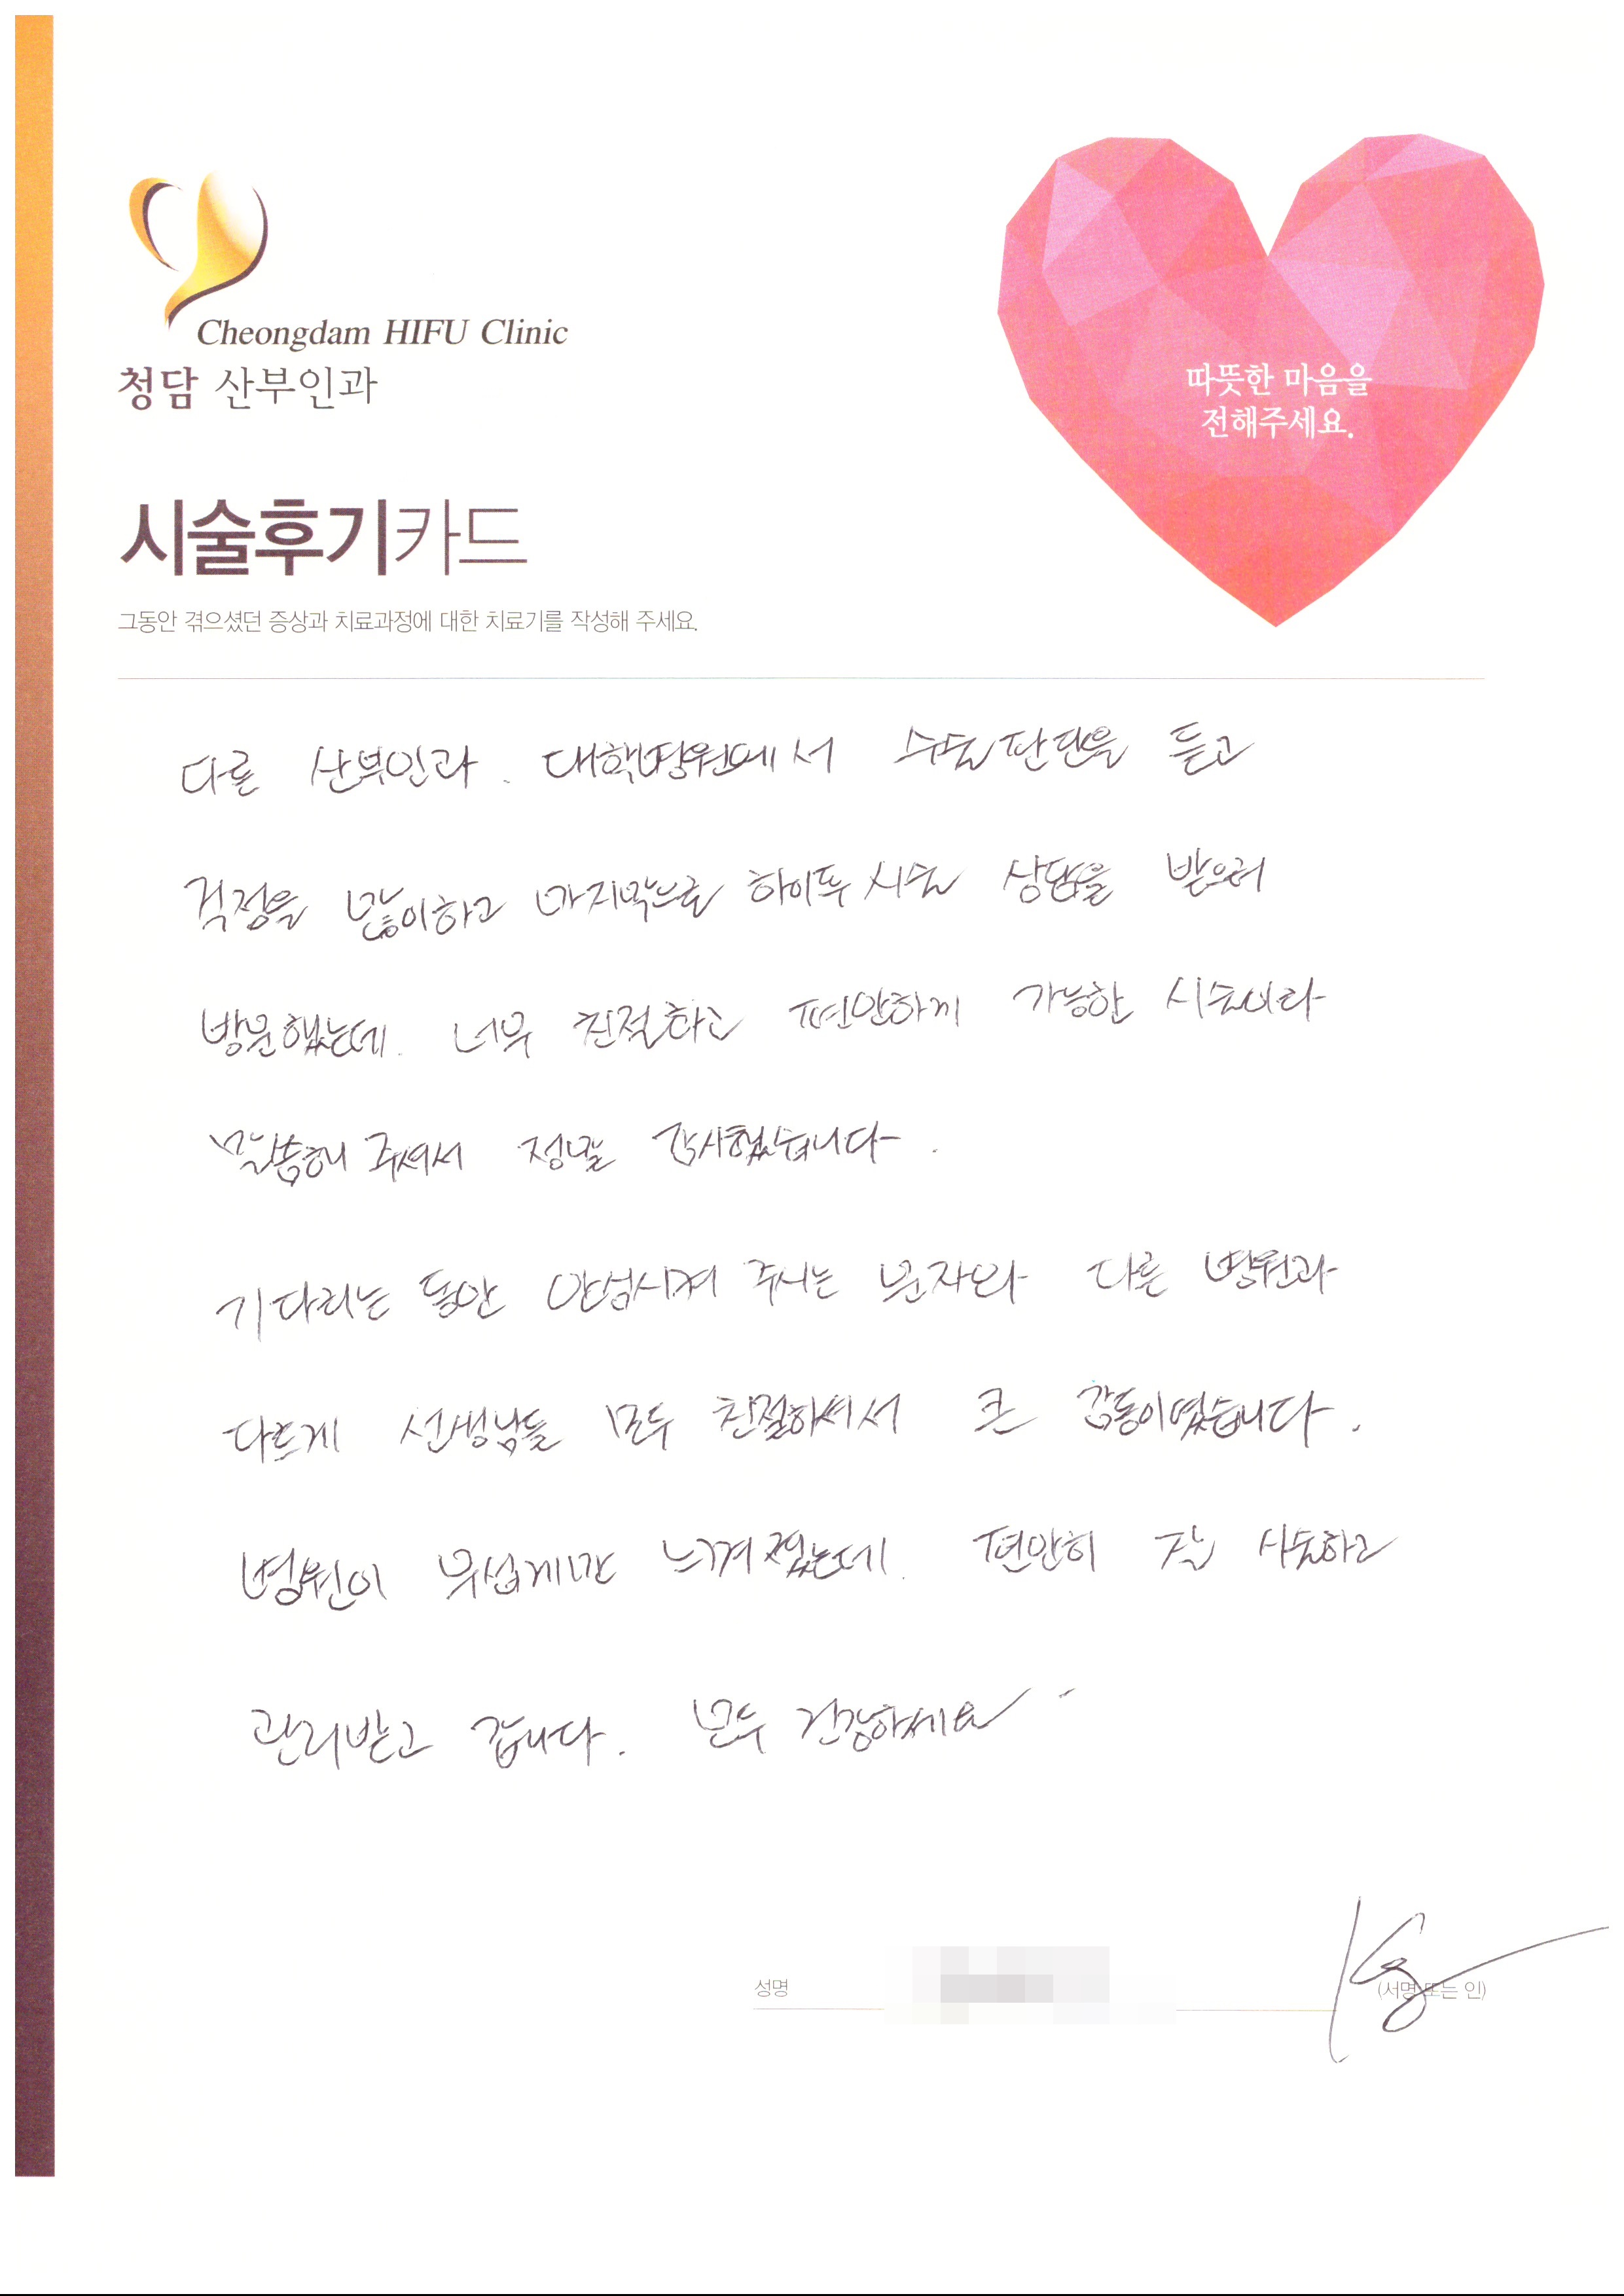 Cheongdam HIFU Clinic
청담 산부인과
따뜻한 마음을
전해주세요.
시술후기카드
그동안 겪으셨던 증상과 치료과정에 대한 치료기를 작성해 주세요.
다른 산부인과. 대학병원에서 수술판단을 듣고
걱정을 많이하고 마지막으로 하이푸 시술 상담을 받으러
방문했는데. 너무 친절하고 편안하게 가능한 시술이라
말씀해 주셔서 정말 감사했습니다.
기다리는 동안 안심시켜 주시는 문자와 다른 병원과
다르게 선생님들 모두 친절하셔서 큰 감동이였습니다.
병원이 무섭게만 느껴졌는데. 편안히 잘 시술하고
관리받고 갑니다. 모두 건강하세요
성명 (서명 또는 인)